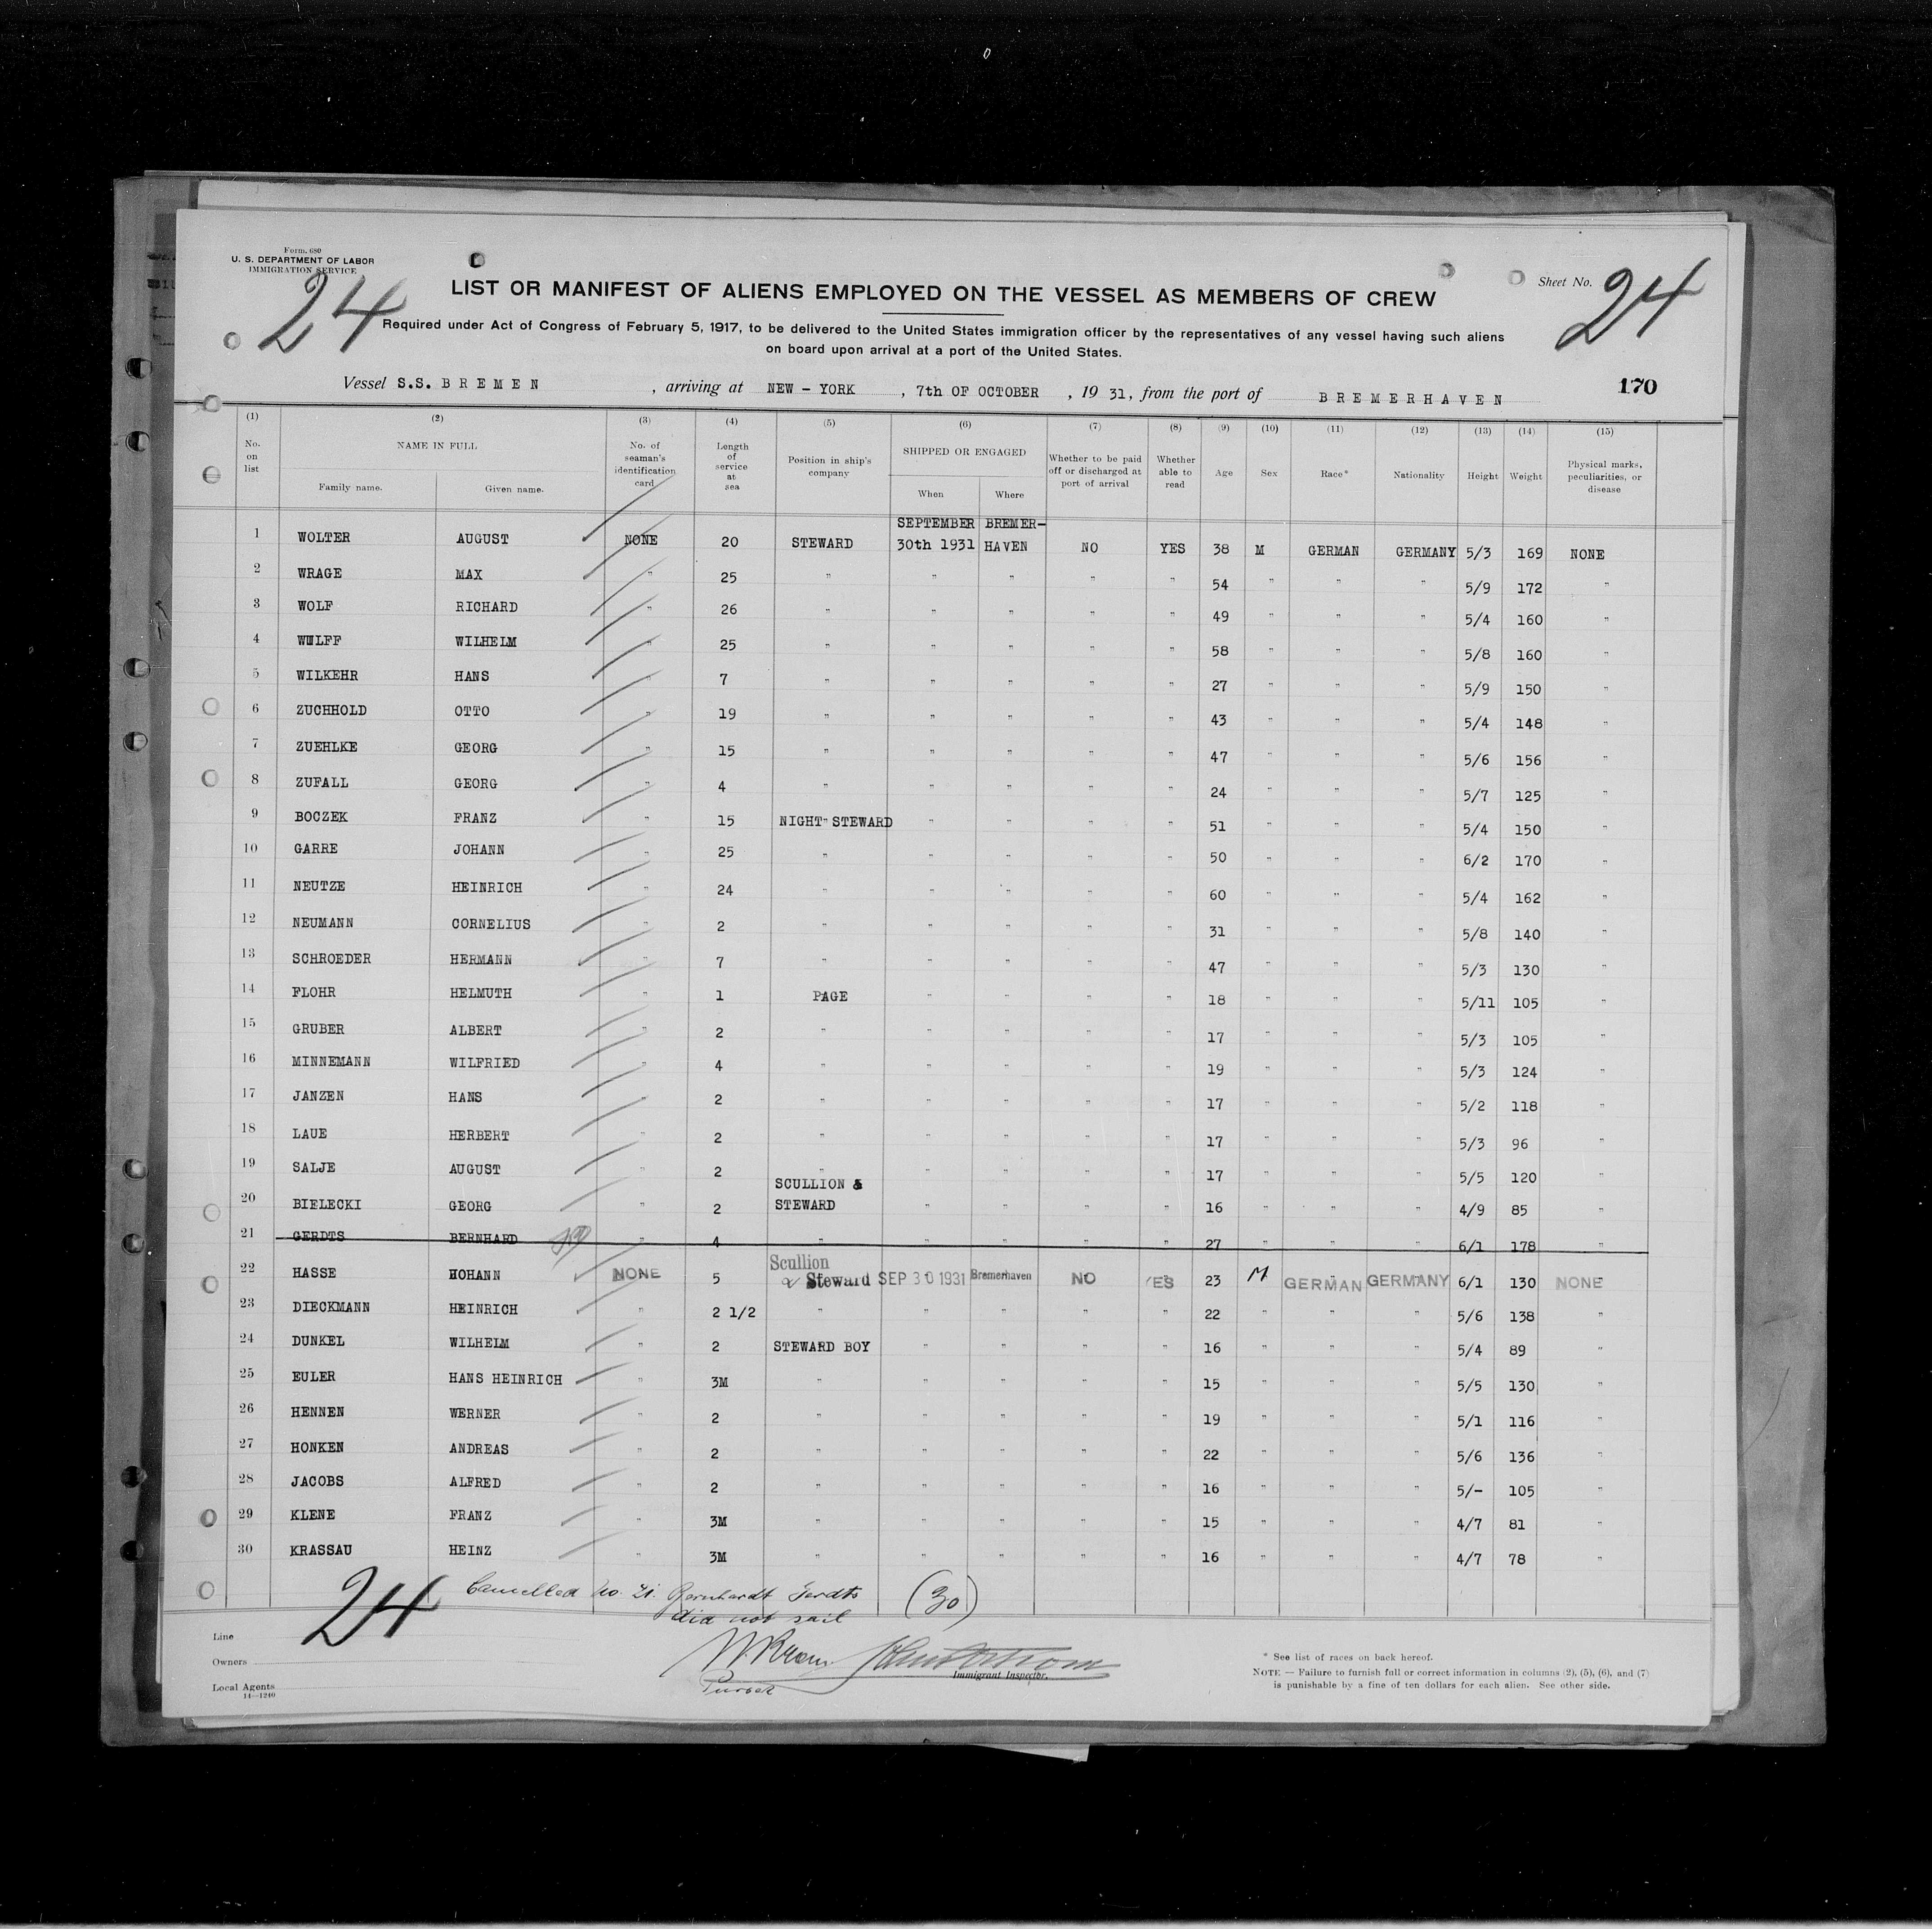 Form. 680
U. S. DEPARTMENT OF LABOR
IMMIGRATION SERVICE
24
LIST OR MANIFEST OF ALIENS EMPLOYED ON THE VESSEL AS MEMBERS OF CREW
Sheet No. 24
Required under Act of Congress of February 5, 1917, to be delivered to the United States immigration officer by the representatives of any vessel having such aliens
on board upon arrival at a port of the United States.
Vessel S.S. BREMEN, arriving at NEW - YORK, 7th OF OCTOBER, 19 31, from the port of BREMERHAVEN
170
(1) (2) (3) (4) (5) (6) (7) (8) (9) (10) (11) (12) (13) (14) (15)
No. on list
NAME IN FULL
Family name. Given name.
No. of seaman's identification card
Length of service at sea
Position in ship's company
SHIPPED OR ENGAGED
When Where
Whether to be paid off or discharged at port of arrival
Whether able to read
Age
Sex
Race*
Nationality
Height
Weight
Physical marks, peculiarities, or disease
1 WOLTER AUGUST NONE 20 STEWARD SEPTEMBER 30th 1931 BREMER-HAVEN NO YES 38 M GERMAN GERMANY 5/3 169 NONE
2 WRAGE MAX " 25 " " " " " 54 " " " 5/9 172 "
3 WOLF RICHARD " 26 " " " " " 49 " " " 5/4 160 "
4 WULFF WILHELM " 25 " " " " " 58 " " " 5/8 160 "
5 WILKEHR HANS " 7 " " " " " 27 " " " 5/9 150 "
6 ZUCHHOLD OTTO " 19 " " " " " 43 " " " 5/4 148 "
7 ZUEHLKE GEORG " 15 " " " " " 47 " " " 5/6 156 "
8 ZUFALL GEORG " 4 " " " " " 24 " " " 5/7 125 "
9 BOCZEK FRANZ " 15 NIGHT"STEWARD " " " " 51 " " " 5/4 150 "
10 GARRE JOHANN " 25 " " " " " 50 " " " 6/2 170 "
11 NEUTZE HEINRICH " 24 " " " " " 60 " " " 5/4 162 "
12 NEUMANN CORNELIUS " 2 " " " " " 31 " " " 5/8 140 "
13 SCHROEDER HERMANN " 7 " " " " " 47 " " " 5/3 130 "
14 FLOHR HELMUTH " 1 PAGE " " " " 18 " " " 5/11 105 "
15 GRUBER ALBERT " 2 " " " " " 17 " " " 5/3 105 "
16 MINNEMANN WILFRIED " 4 " " " " " 19 " " " 5/3 124 "
17 JANZEN HANS " 2 " " " " " 17 " " " 5/2 118 "
18 LAUE HERBERT " 2 " " " " " 17 " " " 5/3 96 "
19 SALJE AUGUST " 2 " " " " " 17 " " " 5/5 120 "
20 BIELECKI GEORG " 2 SCULLION & STEWARD " " " " 16 " " " 4/9 85 "
21 GERDTS BERNHARD " 4 " " " " " 27 " " " 6/1 178 "
22 HASSE HOHANN NONE 5 Scullion & Steward SEP 30 1931 Bremerhaven NO YES 23 M GERMAN GERMANY 6/1 130 NONE
23 DIECKMANN HEINRICH " 2 1/2 " " " " " 22 " " " 5/6 138 "
24 DUNKEL WILHELM " 2 STEWARD BOY " " " " 16 " " " 5/4 89 "
25 EULER HANS HEINRICH " 3M " " " " " 15 " " " 5/5 130 "
26 HENNEN WERNER " 2 " " " " " 19 " " " 5/1 116 "
27 HONKEN ANDREAS " 2 " " " " " 22 " " " 5/6 136 "
28 JACOBS ALFRED " 2 " " " " " 16 " " " 5/- 105 "
29 KLENE FRANZ " 3M " " " " " 15 " " " 4/7 81 "
30 KRASSAU HEINZ " 3M " " " " " 16 " " " 4/7 78 "
24
Cancelled No. 21. Bernhardt Gerdts (30)
did not sail
Line
Owners
Local Agents
14—1240
Purser
Immigrant Inspector.
* See list of races on back hereof.
NOTE — Failure to furnish full or correct information in columns (2), (5), (6), and (7)
is punishable by a fine of ten dollars for each alien. See other side.